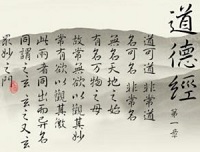 道德經
第一章
道可道 非常道
名可名 非常名
無名天地之始
有名万物之母
故常無欲以觀其妙
常有欲以觀其徼
此兩者同出而异名
同謂之玄玄之又玄
眾妙之門